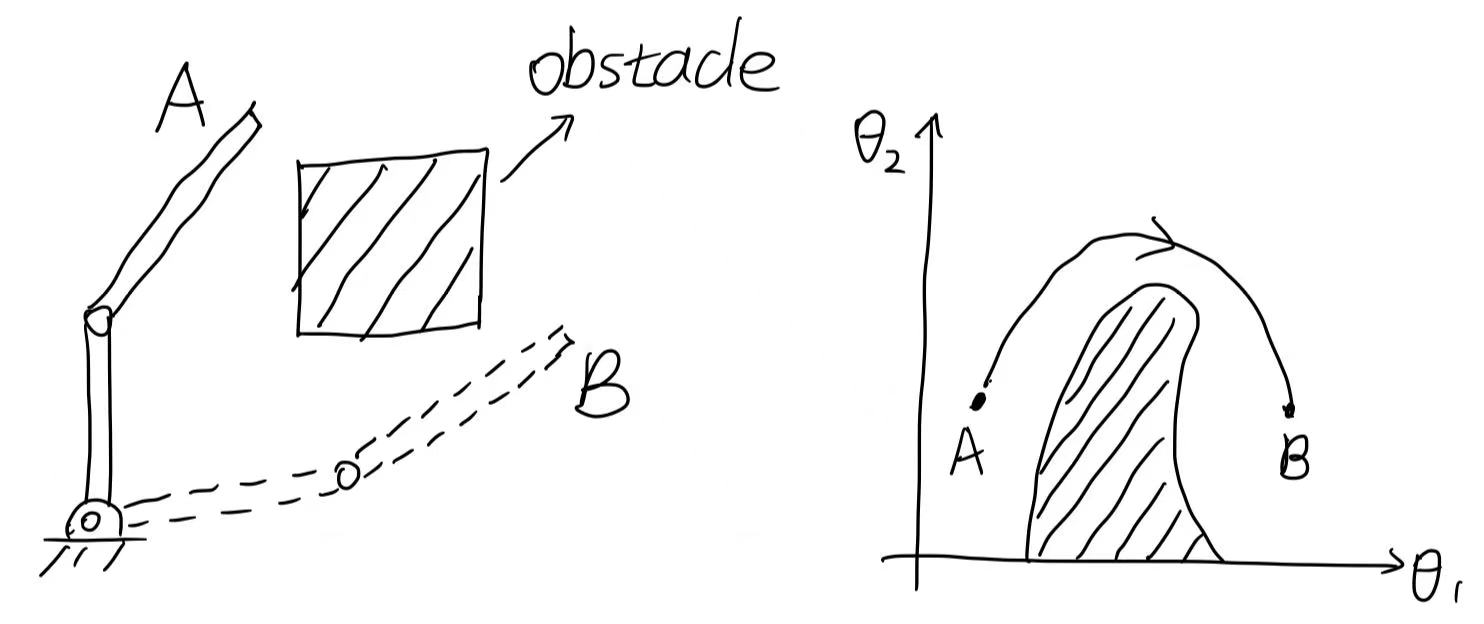 A
obstacle
B
θ₂
A
B
θ₁